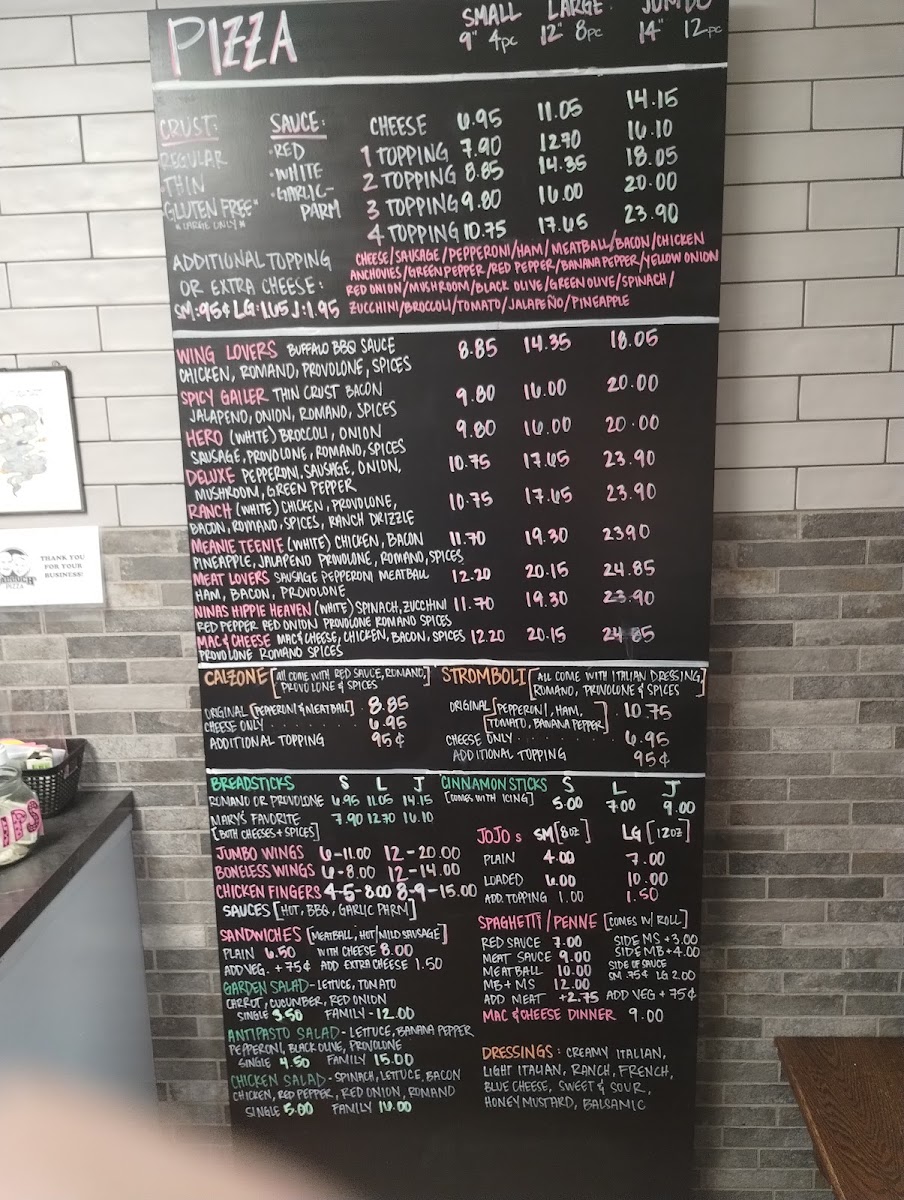 PIZZA
SMALL LARGE JUMBO
9" 4pc 12" 8pc 14" 12pc
CRUST:
REGULAR
THIN
GLUTEN FREE*
*LARGE ONLY*
SAUCE:
·RED
·WHITE
·GARLIC-
PARM
CHEESE 6.95 11.05 14.15
1 TOPPING 7.90 12.70 16.10
2 TOPPING 8.85 14.35 18.05
3 TOPPING 9.80 16.00 20.00
4 TOPPING 10.75 17.65 23.90
ADDITIONAL TOPPING
OR EXTRA CHEESE:
SM:95¢ LG:1.65 J:1.95
CHEESE/SAUSAGE/PEPPERONI/HAM/MEATBALL/BACON/CHICKEN
ANCHOVIES/GREEN PEPPER/RED PEPPER/BANANA PEPPER/YELLOW ONION
RED ONION/MUSHROOM/BLACK OLIVE/GREEN OLIVE/SPINACH/
ZUCCHINI/BROCCOLI/TOMATO/JALAPEÑO/PINEAPPLE
WING LOVERS BUFFALO BBQ SAUCE 8.85 14.35 18.05
CHICKEN, ROMANO, PROVOLONE, SPICES
SPICY GAILER THIN CRUST BACON 9.80 16.00 20.00
JALAPENO, ONION, ROMANO, SPICES
HERO (WHITE) BROCCOLI, ONION 9.80 16.00 20.00
SAUSAGE, PROVOLONE, ROMANO, SPICES
DELUXE PEPPERONI, SAUSAGE, ONION, 10.75 17.65 23.90
MUSHROOM, GREEN PEPPER
RANCH (WHITE) CHICKEN, PROVOLONE, 10.75 17.65 23.90
BACON, ROMANO, SPICES, RANCH DRIZZLE
MEANIE TEENIE (WHITE) CHICKEN, BACON 11.70 19.30 23.90
PINEAPPLE, JALAPENO PROVOLONE, ROMANO, SPICES
MEAT LOVERS SAUSAGE PEPPERONI MEATBALL 12.20 20.15 24.85
HAM, BACON, PROVOLONE
NINAS HIPPIE HEAVEN (WHITE) SPINACH, ZUCCHINI 11.70 19.30 23.90
RED PEPPER RED ONION PROVOLONE ROMANO SPICES
MAC & CHEESE MAC & CHEESE, CHICKEN, BACON, SPICES 12.20 20.15 24.85
PROVOLONE ROMANO SPICES
CALZONE [ALL COME WITH RED SAUCE, ROMANO,
PROVOLONE & SPICES]
ORIGINAL [PEPPERONI & MEATBALL] 8.85
CHEESE ONLY 6.95
ADDITIONAL TOPPING 95¢
STROMBOLI [ALL COME WITH ITALIAN DRESSING,
ROMANO, PROVOLONE & SPICES]
ORIGINAL [PEPPERONI, HAM, 10.75
TOMATO, BANANA PEPPER]
CHEESE ONLY 6.95
ADDITIONAL TOPPING 95¢
BREADSTICKS S L J
ROMANO OR PROVOLONE 6.95 11.05 14.15
MARY'S FAVORITE 7.90 12.70 16.10
[BOTH CHEESES + SPICES]
CINNAMON STICKS S L J
[COMES WITH ICING] 5.00 7.00 9.00
JUMBO WINGS 6-11.00 12-20.00
BONELESS WINGS 6-8.00 12-14.00
CHICKEN FINGERS 4-5-8.00 8-9-15.00
SAUCES [HOT, BBQ, GARLIC PARM]
JOJOs SM [8oz] LG [12oz]
PLAIN 4.00 7.00
LOADED 6.00 10.00
ADD. TOPPING 1.00 1.50
SANDWICHES [MEATBALL, HOT/MILD SAUSAGE]
PLAIN 6.50 WITH CHEESE 8.00
ADD VEG. +75¢ ADD EXTRA CHEESE 1.50
GARDEN SALAD - LETTUCE, TOMATO
CARROT, CUCUMBER, RED ONION
SINGLE 3.50 FAMILY - 12.00
ANTIPASTO SALAD - LETTUCE, BANANA PEPPER
PEPPERONI, BLACK OLIVE, PROVOLONE
SINGLE 4.50 FAMILY 15.00
CHICKEN SALAD - SPINACH, LETTUCE, BACON
CHICKEN, RED PEPPER, RED ONION, ROMANO
SINGLE 5.00 FAMILY 16.00
SPAGHETTI/PENNE [COMES W/ ROLL]
RED SAUCE 7.00 SIDE MS +3.00
MEAT SAUCE 9.00 SIDE MB +4.00
MEATBALL 10.00 SIDE OF SAUCE
MB + MS 12.00 SM .75¢ LG 2.00
ADD MEAT +2.75 ADD VEG +75¢
MAC & CHEESE DINNER 9.00
DRESSINGS: CREAMY ITALIAN,
LIGHT ITALIAN, RANCH, FRENCH,
BLUE CHEESE, SWEET & SOUR,
HONEY MUSTARD, BALSAMIC
THANK YOU
FOR YOUR
BUSINESS!
PIZZA